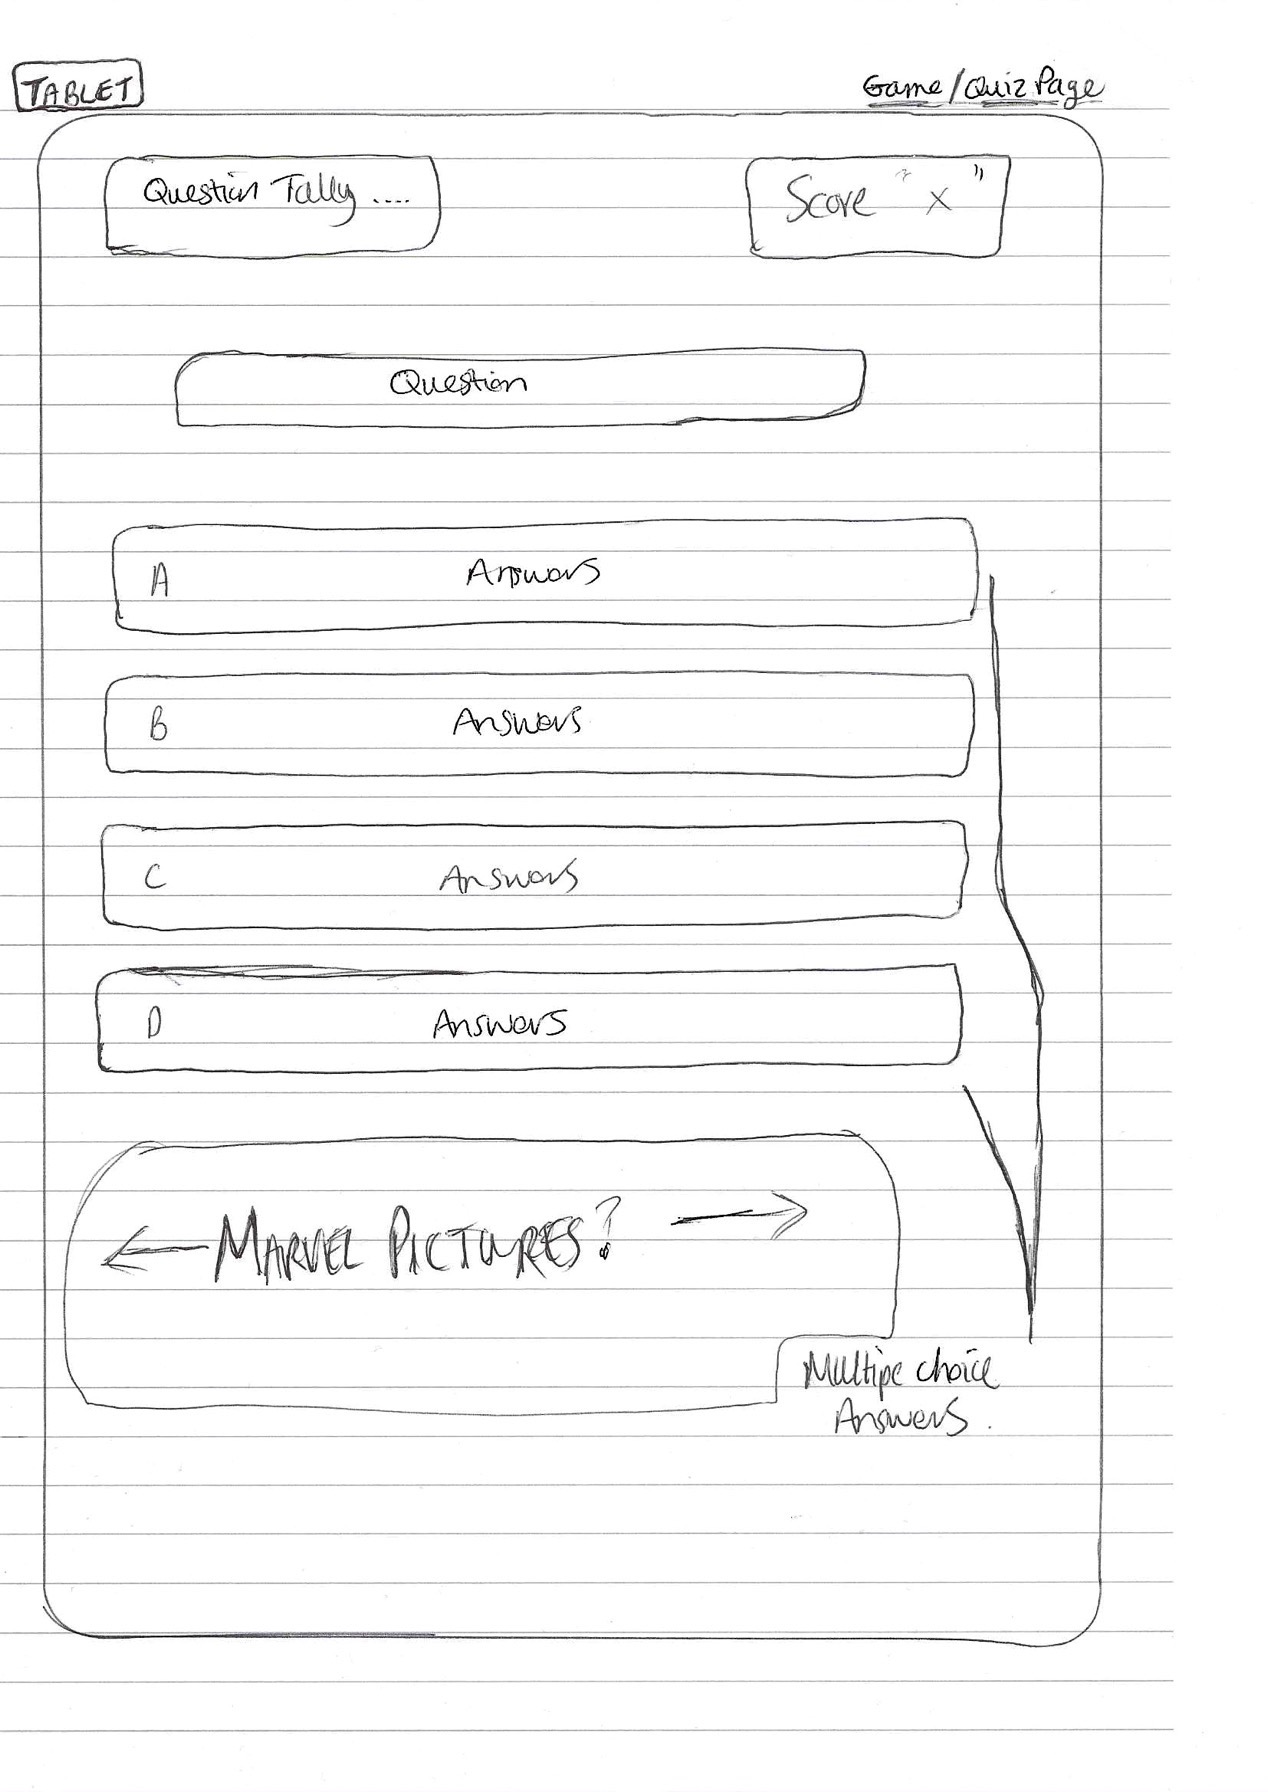 TABLET
Game/Quiz Page
Question Tally ....
Score " x "
Question
A Answers
B Answers
C Answers
D Answers
MARVEL PICTURES?
Multipe choice
Answers.